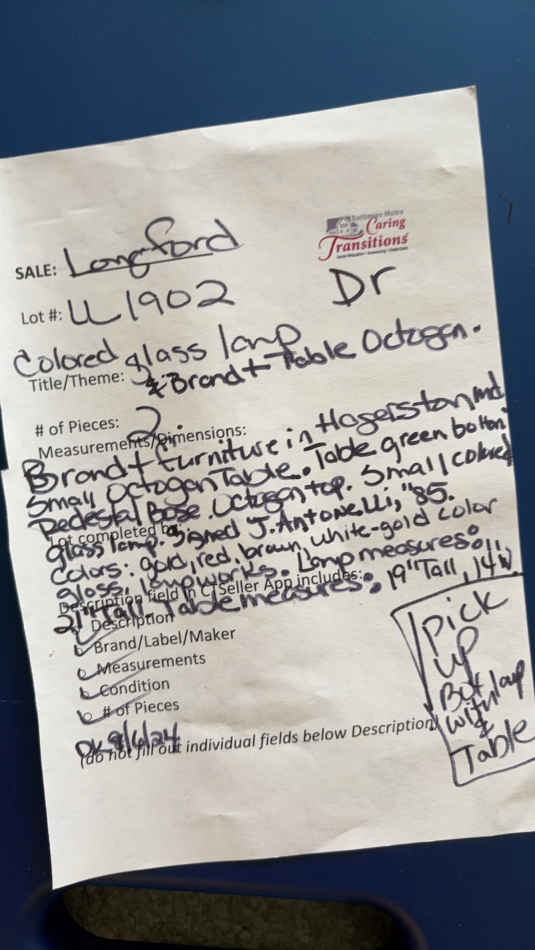 Caring
Transitions
SALE: Longford
Lot #: LL1902
Dr
Colored glass lamp
Title/Theme: & Brandt Table Octogon.
# of Pieces: 2.
Measurements/Dimensions:
Brandt furniture in Hagerston md
Small Octogon Table. Table green bottom
Pedestal Base. Octogon top. Small colored
Lot completed by:
glass lamp. Signed J. Antonelli, "85.
Colors: gold, red, brown, white-gold color
glass, lamp works. Lamp measures:
Description field in CTSeller App includes:
21" Tall Table measures: 19" Tall, 14"W.
Description
Brand/Label/Maker
Measurements
Condition
# of Pieces
DK 8/6/24
(do not fill out individual fields below Description)
Pick
up
Box
with lamp
&
Table